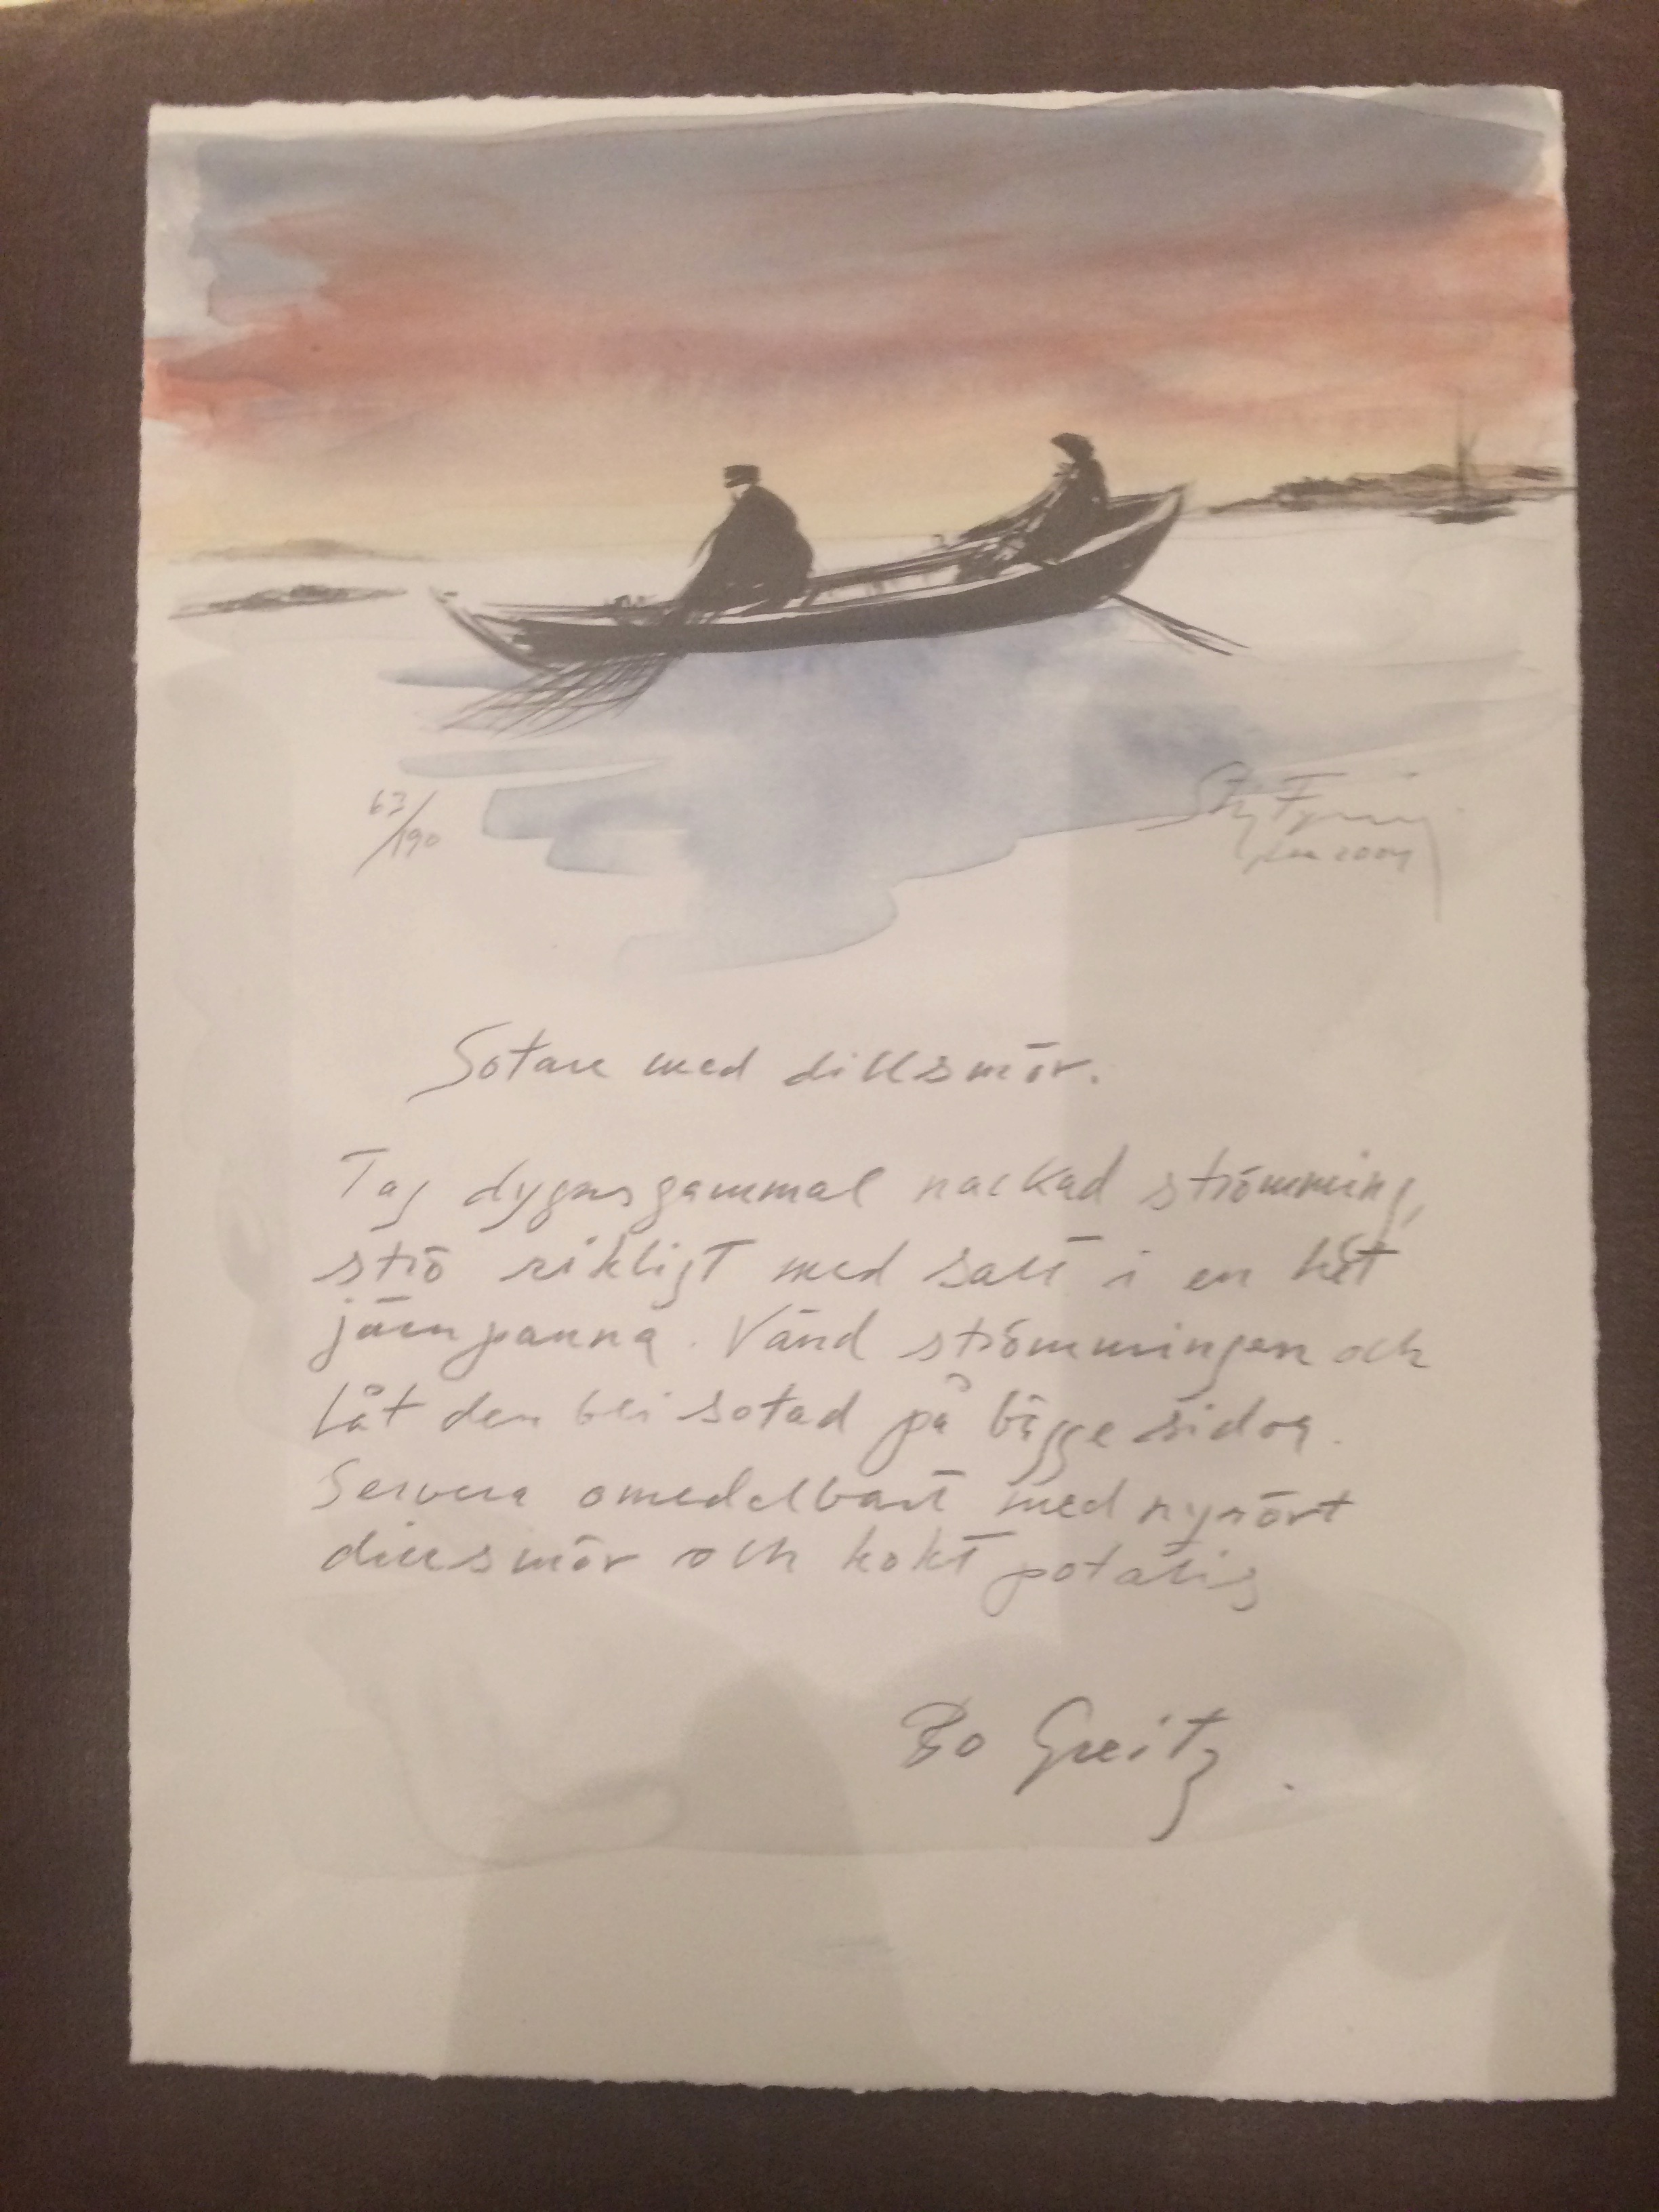 63/190
2004
Sotare med dillsmör.
Tag dygnsgammal nackad strömming,
strö rikligt med salt i en het
järnpanna. Vänd strömmingen och
låt den bli sotad på bägge sidor.
Servera omedelbart med nyrört
dillsmör och kokt potatis
Bo Greitz